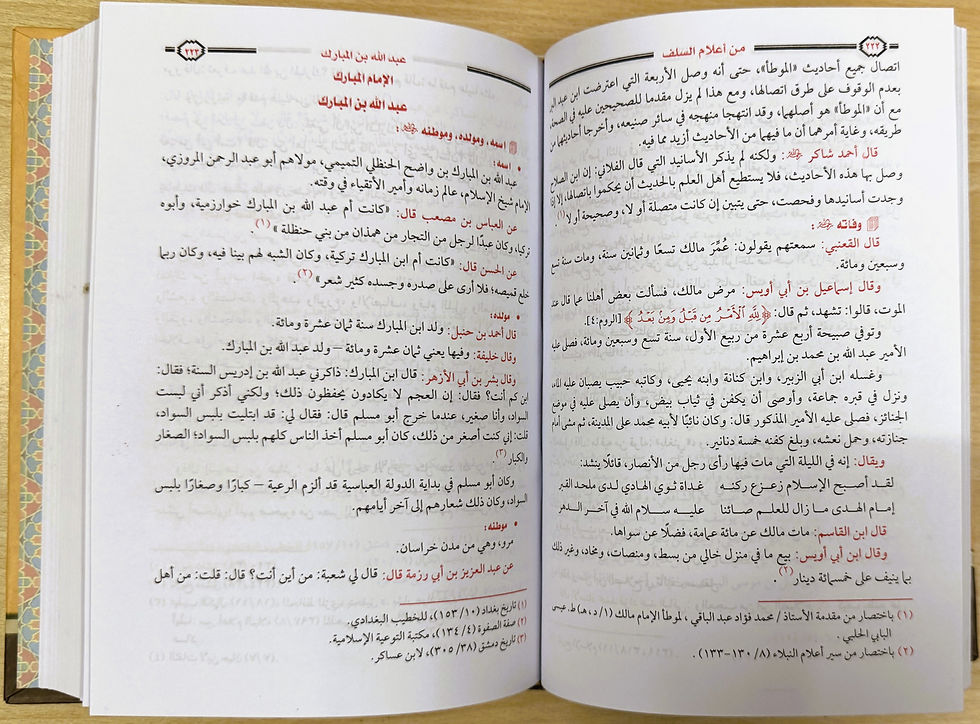 ٢٢٢
من أعلام السلف
اتصال جميع أحاديث «الموطأ»، حتى أنه وصل الأربعة التي اعترضت ابن عبد البر
بعدم الوقوف على طرق اتصالها، ومع هذا لم يزل مقدما للصحيحين عليه في الصحة
مع أن «الموطأ» هو أصلهما، وقد انتهجا منهجه في سائر صنيعه، وأخرجا أحاديثهما من
طريقه، وغاية أمرهما أن ما فيهما من الأحاديث أزيد بما فيه.
قال أحمد شاكر: ولكنه لم يذكر الأسانيد التي قال الفلاني: إن ابن الصلاح
وصل بها هذه الأحاديث، فلا يستطيع أهل العلم بالحديث أن يحكموا باتصالها، إلا إذا
وجدت أسانيدها وفحصت، حتى يتبين إن كانت متصلة أو لا، وصحيحة أو لا (١).
وفاته :
قال القعنبي: سمعتهم يقولون: عُمِّرَ مالك تسعًا وثمانين سنة، ومات سنة تسع
وسبعين ومائة.
وقال إسماعيل بن أبي أويس: مرض مالك، فسألت بعض أهلنا عما قال عند
الموت، قالوا: تشهد، ثم قال: ﴿لِلَّهِ الْأَمْرُ مِن قَبْلُ وَمِنْ بَعْدُ﴾ [الروم: ٤].
وتوفي صبيحة أربع عشرة من ربيع الأول، سنة تسع وسبعين ومائة، فصلى عليه
الأمير عبد الله بن محمد بن إبراهيم.
وغسله ابن أبي الزبير، وابن كنانة وابنه يحيى، وكاتبه حبيب يصبان عليه الماء،
ونزل في قبره جماعة، وأوصى أن يكفن في ثياب بيض، وأن يصلى عليه في موضع
الجنائز، فصلى عليه الأمير المذكور قال: وكان نائبًا لأبيه محمد على المدينة، ثم مشى أمام
جنازته، وحمل نعشه، وبلغ كفنه خمسة دنانير.
ويقال: إنه في الليلة التي مات فيها رأى رجل من الأنصار، قائلًا ينشد:
لقد أصبح الإسلام زعزع ركنه غداة ثوى الهادي لدى ملحد القبر
إمام الهدى ما زال للعلم صائنا عليه سلام الله في آخر الدهر
قال ابن القاسم: مات مالك عن مائة عمامة، فضلًا عن سواها.
وقال ابن أبي أويس: بيع ما في منزل خالي من بسط، ومنصات، ومخاد، وغير ذلك
بما ينيف على خمسمائة دينار (٢).
(١) باختصار من مقدمة الأستاذ / محمد فؤاد عبد الباقي، لموطأ الإمام مالك (١/ د، هـ) ط. عيسى
البابي الحلبي.
(٢) باختصار من سير أعلام النبلاء (٨/ ١٣٠-١٣٣).
عبد الله بن المبارك
٢٢٣
الإمام المبارك
عبد الله بن المبارك
اسمه، ومولده، وموطنه :
• اسمه:
عبد الله بن المبارك بن واضح الحنظلي التميمي، مولاهم أبو عبد الرحمن المروزي،
الإمام شيخ الإسلام، عالم زمانه وأمير الأتقياء في وقته.
عن العباس بن مصعب قال: «كانت أم عبد الله بن المبارك خوارزمية، وأبوه
تركيا، وكان عبدًا لرجل من التجار من همذان من بني حنظلة» (١).
عن الحسن قال: «كانت أم ابن المبارك تركية، وكان الشبه لهم بينا فيه، وكان ربما
خلع قميصه؛ فلا أرى على صدره وجسده كثير شعر» (٢).
• مولده:
قال أحمد بن حنبل: ولد ابن المبارك سنة ثمان عشرة ومائة.
وقال خليفة: وفيها يعني ثمان عشرة ومائة – ولد عبد الله بن المبارك.
وقال بشر بن أبي الأزهر: قال ابن المبارك: ذاكرني عبد الله بن إدريس السنة؛ فقال:
ابن كم أنت؟ فقال: إن العجم لا يكادون يحفظون ذلك؛ ولكني أذكر أني لبست
السواد، وأنا صغير، عندما خرج أبو مسلم قال: فقال لي: قد ابتليت بلبس السواد،
قلت: إني كنت أصغر من ذلك، كان أبو مسلم أخذ الناس كلهم بلبس السواد؛ الصغار
والكبار (٣).
وكان أبو مسلم في بداية الدولة العباسية قد ألزم الرعية – كبارًا وصغارًا بلبس
السواد، وكان ذلك شعارهم إلى آخر أيامهم.
• موطنه:
مرو، وهي من مدن خراسان.
عن عبد العزيز بن أبي رزمة قال: قال لي شعبة: من أين أنت؟ قال: قلت: من أهل
(١) تاريخ بغداد (١٠/ ١٥٣)، للخطيب البغدادي.
(٢) صفة الصفوة (٤/ ١٣٤)، مكتبة التوعية الإسلامية.
(٣) تاريخ دمشق (٣٨/ ٣٠٥)، لابن عساكر.